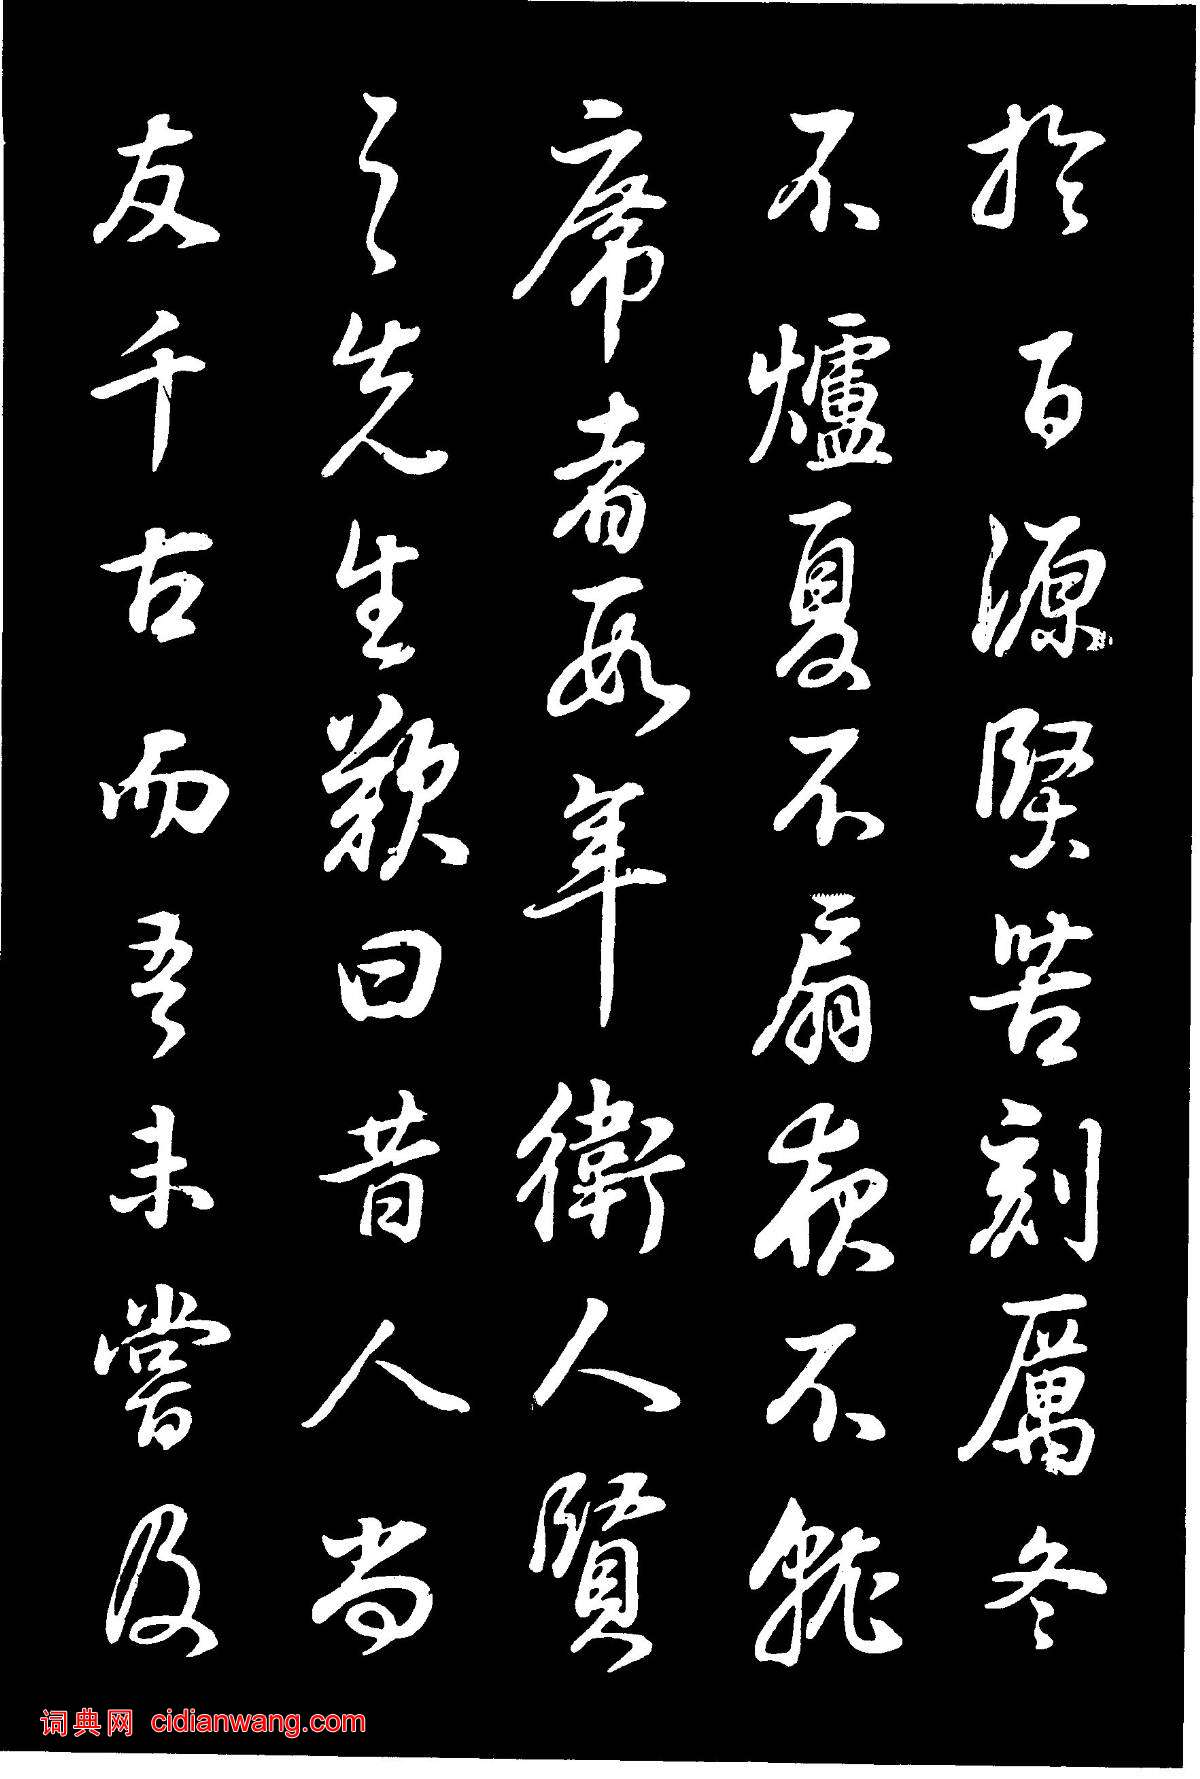 於百源堅苦刻厲冬
不爐夏不扇夜不就
席者數年衛人賢
之先生歎曰昔人尚
友千古而吾未嘗及
词典网 cidianwang.com